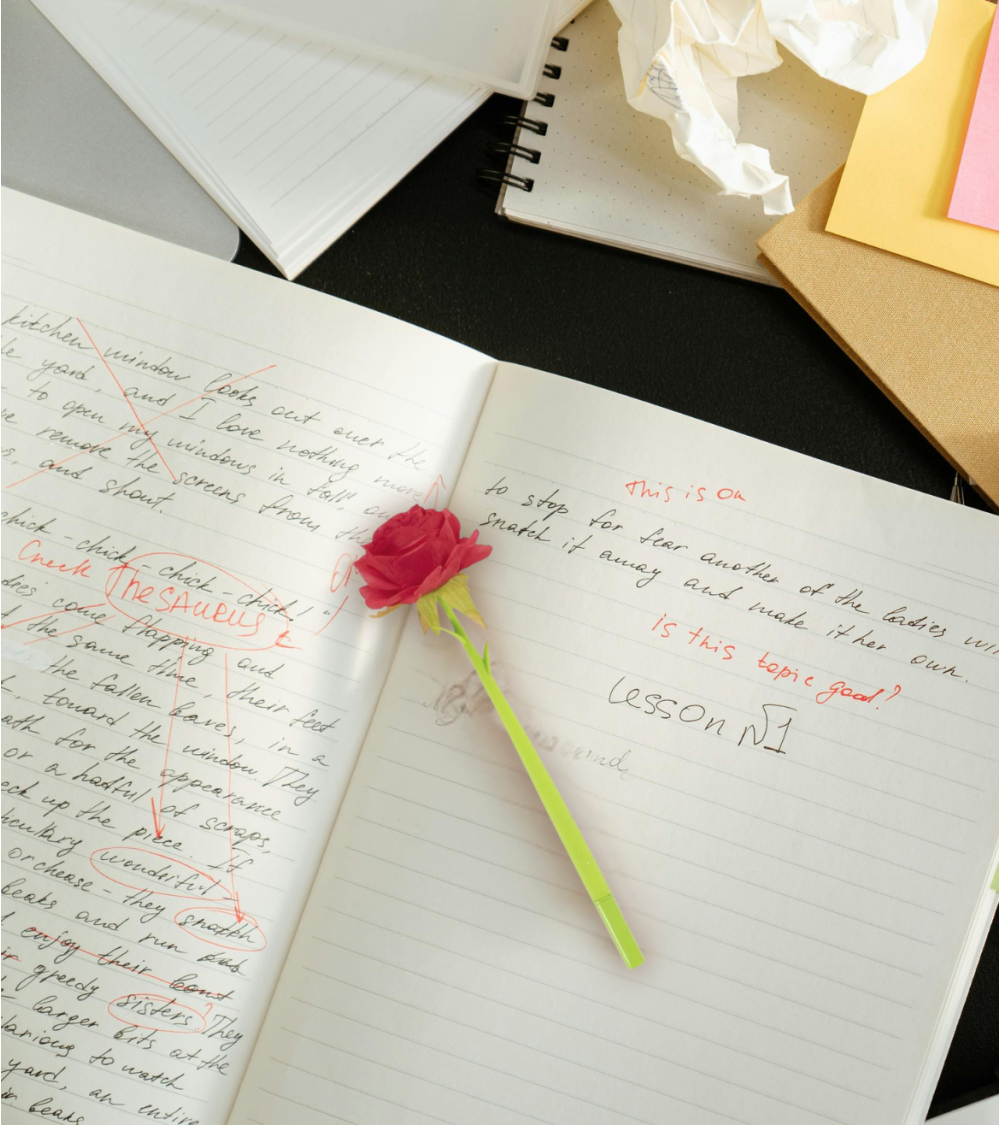 kitchen window looks out over the
yard, and I love nothing more
to open my windows in fall, 
remove the screens from the
and shout.
chick - chick - chick - chick!"
Check TheSAURUS
come flapping and
the same time, their feet
the fallen leaves, in a
toward the window. They
for the appearance
or a hadful of scraps,
up the piece. If
wondriful -
or chease - they snatch
beaks and run
enjoy their
greedy sisters? They
larger bits at the
to watch
yard, an entire
beaks
This is OK
to stop for fear another of the ladies
snatch it away and make it her own.
is this topic good?
Lesson №1